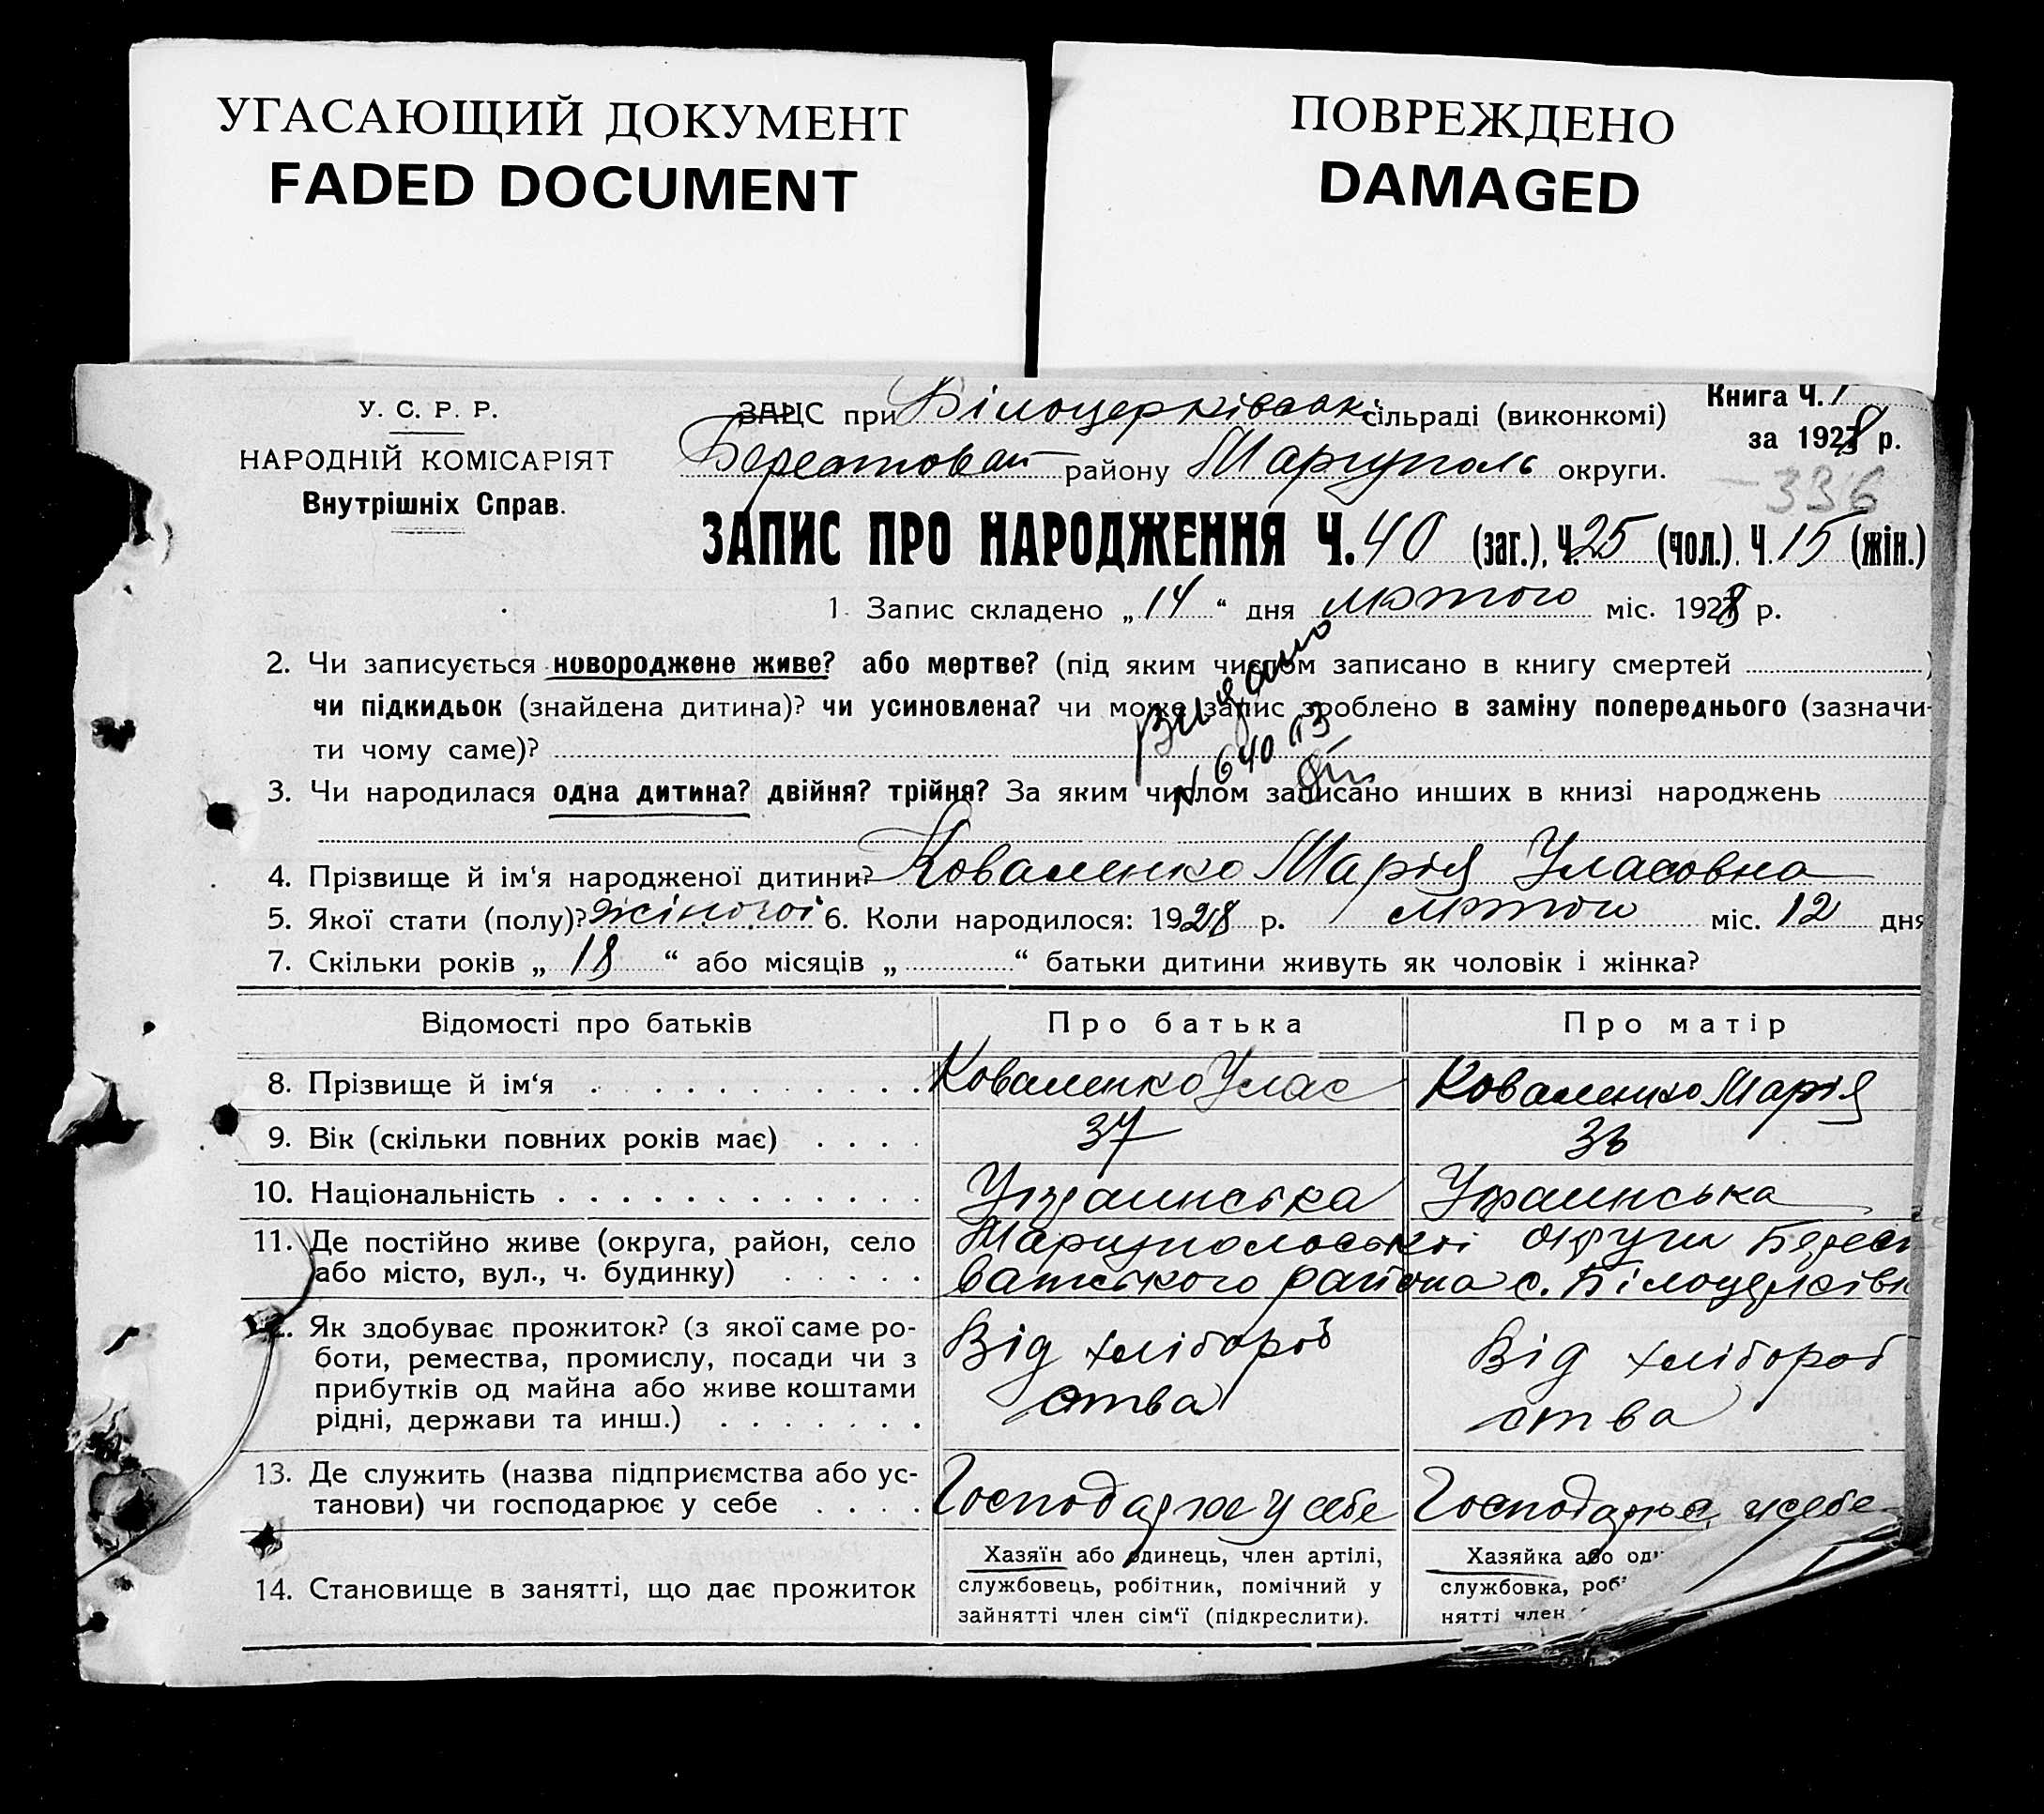 УГАСАЮЩИЙ ДОКУМЕНТ
FADED DOCUMENT
ПОВРЕЖДЕНО
DAMAGED
У. С. Р. Р.
НАРОДНІЙ КОМІСАРІЯТ
Внутрішніх Справ.
ЗАЦС при Білоцерківськ. сільраді (виконкомі)
Книга Ч. 1
за 1928 р.
Берестован району Маріуполь округи.
336
ЗАПИС ПРО НАРОДЖЕННЯ Ч. 40 (заг.), Ч. 25 (чол.), Ч. 15 (жін.)
1. Запис складено „14“ дня лютого міс. 1928 р.
2. Чи записується новороджене живе? або мертве? (під яким числом записано в книгу смертей )
чи підкидьок (знайдена дитина)? чи усиновлена? чи може запис зроблено в заміну попереднього (зазначи-
ти чому саме)?
Видано
№ 640113
3. Чи народилася одна дитина? двійня? трійня? За яким числом записано инших в книзі народжень
4. Прізвище й ім‘я народженої дитини? Коваленко Марія Уласовна
5. Якої стати (полу)? жіночої 6. Коли народилося: 1928 р. лютого міс. 12 дня
7. Скільки років „ 18 “ або місяців „ “ батьки дитини живуть як чоловік і жінка?
Відомості про батьків Про батька Про матір
8. Прізвище й ім‘я Коваленко Улас Коваленко Марія
9. Вік (скільки повних років має) 37 36
10. Національність Украинська Украинська
11. Де постійно живе (округа, район, село Маріупольської округи Берест
або місто, вул., ч. будинку) ватського района с. Білоцерківк
12. Як здобуває прожиток? (з якої саме ро-
боти, ремества, промислу, посади чи з
прибутків од майна або живе коштами
рідні, держави та инш.)
Від хлібороб
ства
Від хлібороб
ства
13. Де служить (назва підприємства або ус-
танови) чи господарює у себе
Господарює у себе Господарює у себе
14. Становище в занятті, що дає прожиток
Хазяїн або одинець, член артілі,
службовець, робітник, помічний у
зайнятті член сім‘ї (підкреслити).
Хазяйка або оди
службовка, роб
нятті член